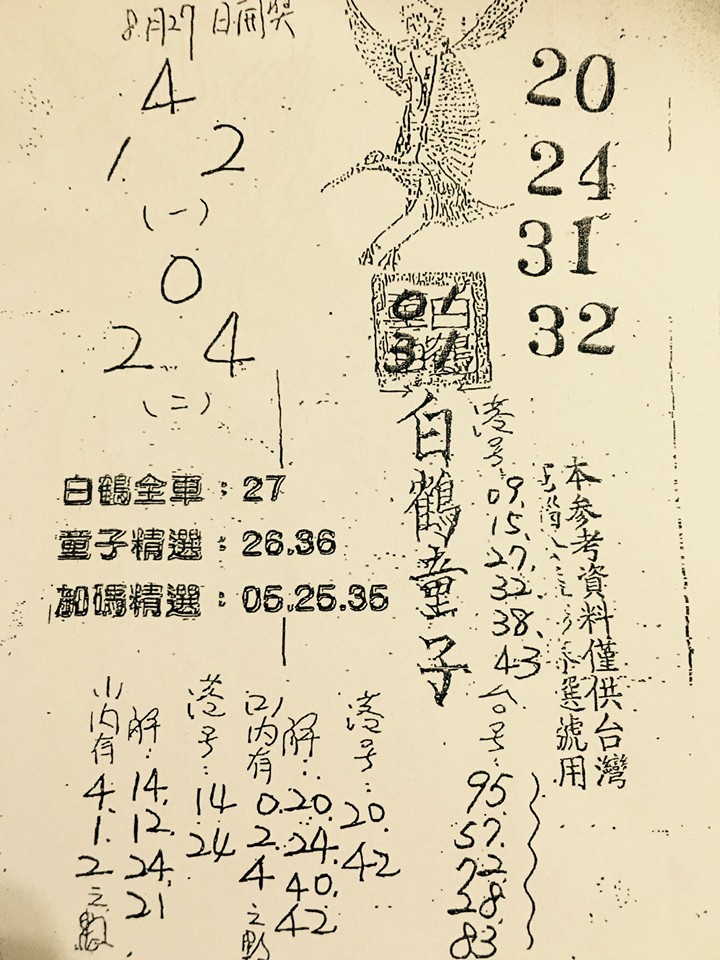 8月27日開獎
4
1 2
(一)
0
2 4
(二)
20
24
31
32
01
31
白鶴童子
白鶴全車：27
童子精選：26.36
加碼精選：05.25.35
港号：
09.
15.
27.
32
38.
43
台号：
95
57.
72
28.
83
本參考資料僅供台灣
選號用
(一)內有
4.
1.
2
之數
解：
14.
12.
24.
21
港号：
14
24
(二)內有
0.
2.
4
之數
解：
20.
24.
40.
42
港号：
20.
42